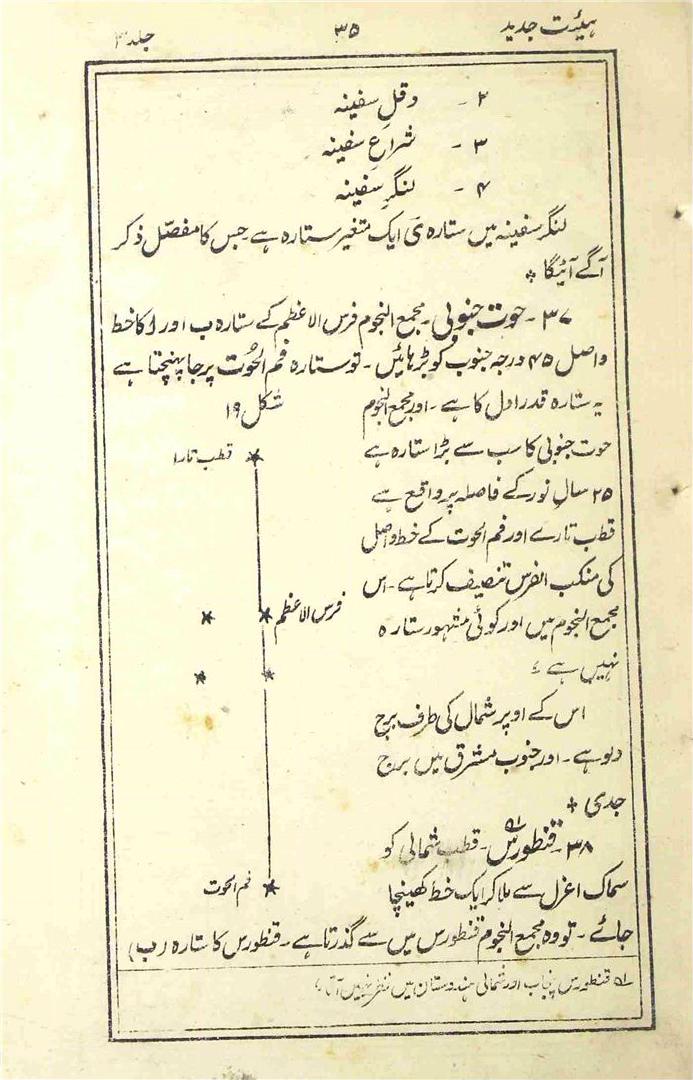 ہیئت جدید ۳۵ جلد ۳
۲ - دقل سفینہ
۳ - شراعِ سفینہ
۴ - لنگرِ سفینہ
لنگر سفینہ میں ستارہ یَ ایک متغیر ستارہ ہے جس کا مفصّل ذکر
آگے آئیگا *
۳۷ - حوت جنوبی - مجمع النجوم فرس الاعظم کے ستارہ ب اور ا کا خط
واصل ۴۵ درجہ جنوب کو بڑہائیں - تو ستارہ فم الحُوت پر جا پہنچتا ہے
یہ ستارہ قدر اول کا ہے - اور مجمع النجوم
حوت جنوبی کا سب سے بڑا ستارہ ہے
۲۵ سالِ نور کے فاصلہ پر واقع ہے
قطب تارے اور فم الحوت کے خط واصل
کی منکب الفرس تنصیف کرتا ہے - اس
مجمع النجوم میں اور کوئی مشہور ستارہ
نہیں ہے ؛
اس کے اوپر شمال کی طرف برج
دلو ہے - اور جنوب مشرق میں برج
جدی *
شکل ۱۹
قطب تارا
فرس الاعظم
فم الحوت
۳۸ - قنطورس ۵۱ - قطب شمالی کو
سماک اعزل سے ملا کر ایک خط کھینچا
جائے - تو وہ مجمع النجوم قنطورس میں سے گذرتا ہے - قنطورس کا ستارہ (ب)
۵۱ قنطورس پنجاب اور شمالی ہندوستان میں نظر نہیں آتا ؛